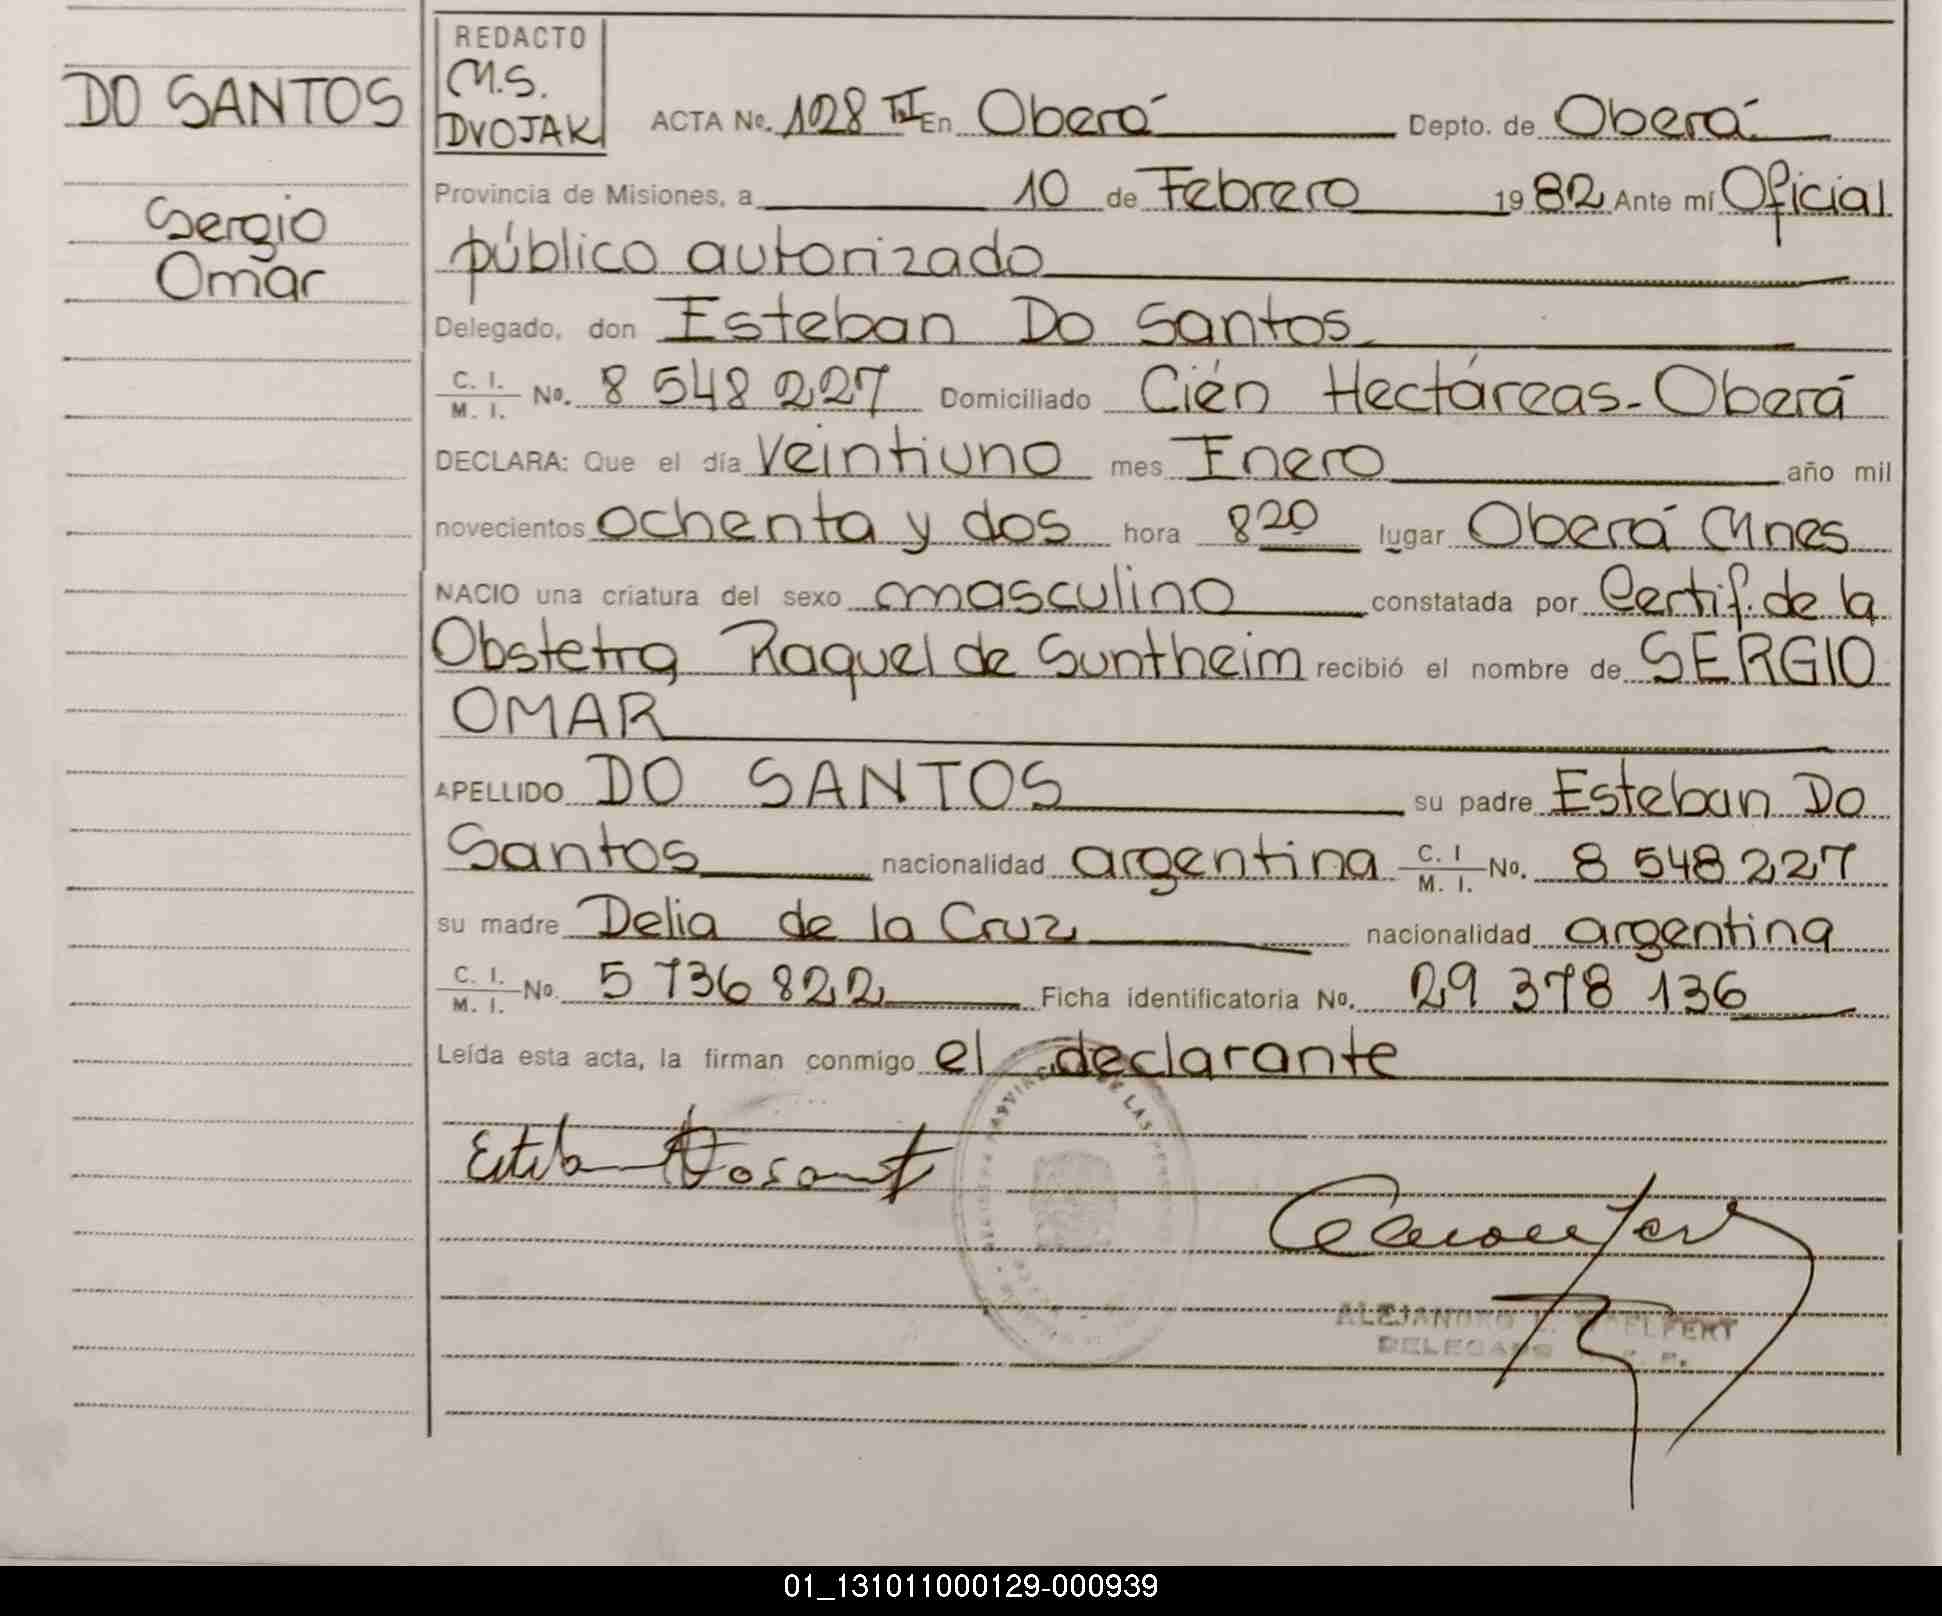 DO SANTOS
Sergio
Omar
REDACTO
M.S.
DVOJAK
ACTA No. 128 TI En Oberá Depto. de Oberá
Provincia de Misiones, a 10 de Febrero 1982 Ante mí Oficial
público autorizado
Delegado, don Esteban Do Santos
C. I. / M. I. No. 8 548 227 Domiciliado Cién Hectáreas-Oberá
DECLARA: Que el día Veintiuno mes Enero año mil
novecientos ochenta y dos hora 8 20 lugar Oberá Mnes
NACIO una criatura del sexo masculino constatada por Certif. de la
Obstetra Raquel de Suntheim recibió el nombre de SERGIO
OMAR
APELLIDO DO SANTOS su padre Esteban Do
Santos nacionalidad argentina C. I / M. I. No. 8 548 227
su madre Delia de la Cruz nacionalidad argentina
C. I. / M. I. No. 5 736 822 Ficha identificatoria No. 29 378 136
Leída esta acta, la firman conmigo el declarante
ALEJANDRO
DELEGADO
01_131011000129-000939